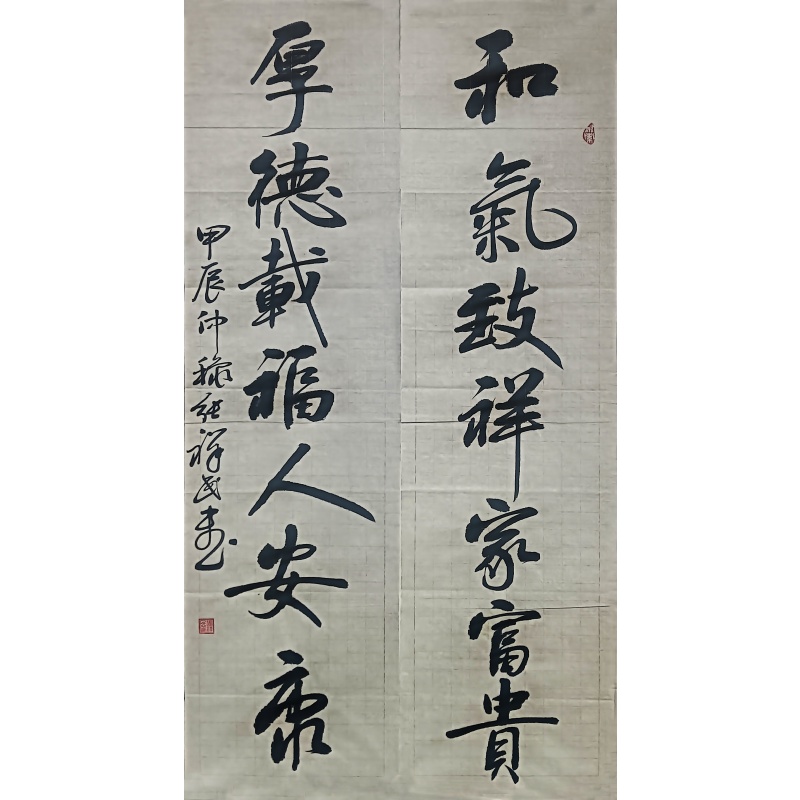 和氣致祥家富貴
厚德載福人安康
甲辰仲穐張祥武書